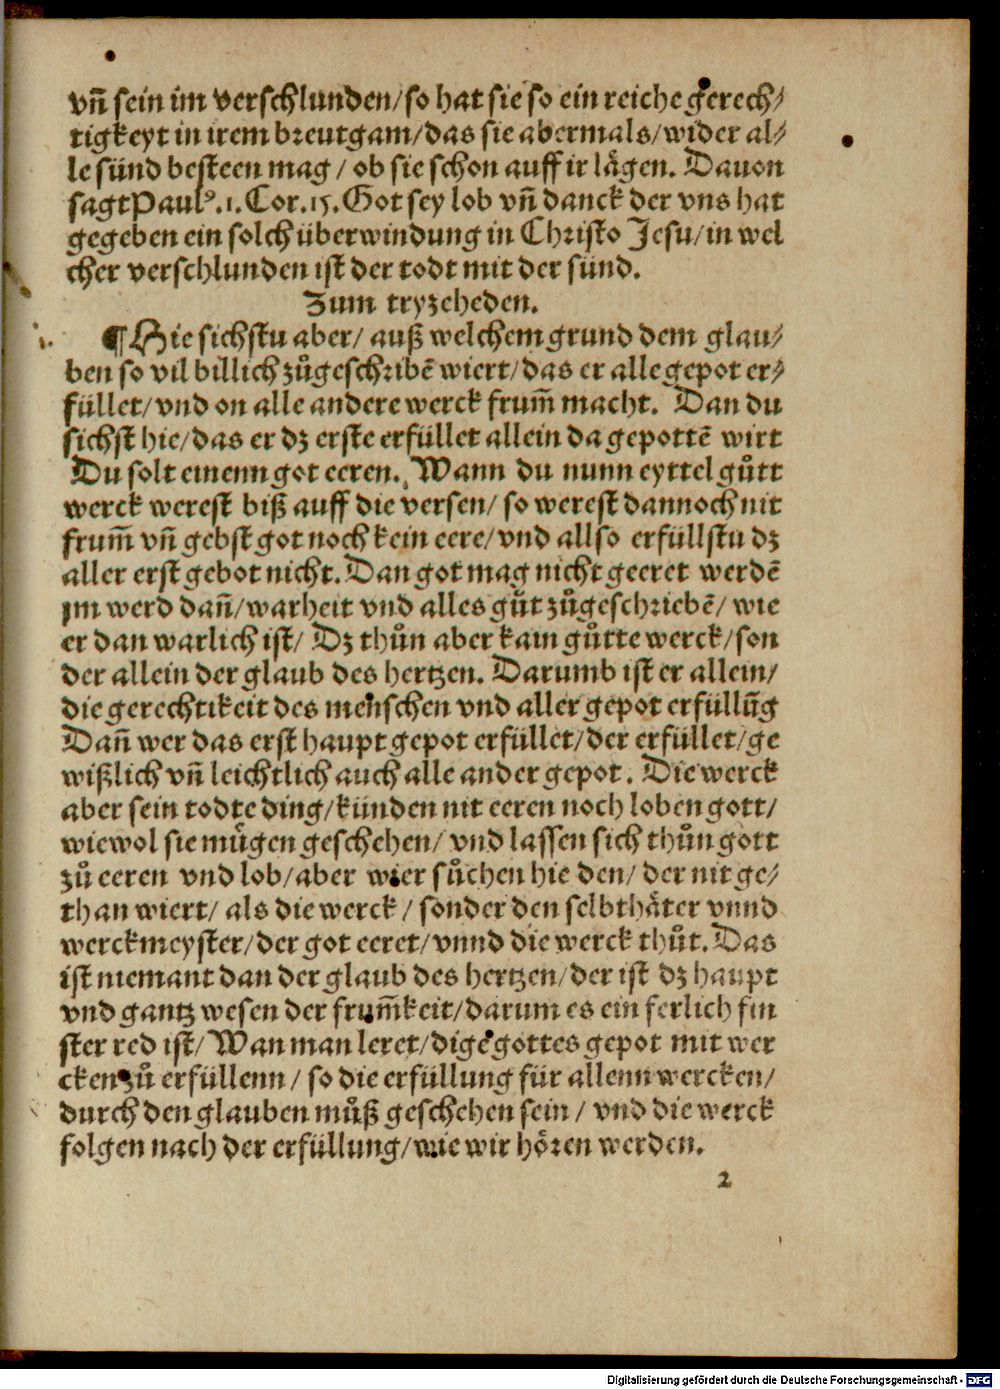 vn̄ sein im verschlunden/so hat sie so ein reiche gerech⸗
tigkeyt in irem breutgam/das sie abermals/wider al⸗
le sünd besteen mag/ ob sie schon auff ir lågen. Davon
sagt Paulꝰ.1.Cor.15.Got sey lob vn̄ danck der vns hat
gegeben ein solch überwindung in Christo Jesu/in wel
cher verschlunden ist der todt mit der sünd.
Zum tryzeheden.
¶ Hie sichstu aber/ auß welchem grund dem glau⸗
ben so vil billich zůgeschribē wiert/das er alle gepot er⸗
füllet/vnd on alle andere werck frum̄ macht. Dan du
sichst hie/das er dz erste erfüllet allein da gepottē wirt
Du solt einenn got eeren. Wann du nunn eyttel gůtt
werck werest biß auff die versen/ so werest dannoch nit
frum̄ vn̄ gebst got noch kein eere/vnd allso erfüllstu dz
aller erst gebot nicht. Dan got mag nicht geeret werdē
jm werd dan̄/warheit vnd alles gůt zůgeschriebē/ wie
er dan warlich ist/ Dz thůn aber kain gůtte werck/son
der allein der glaub des hertzen. Darumb ist er allein/
die gerechtikeit des menschen vnd aller gepot erfüllūg
Dan̄ wer das erst haupt gepot erfüllet/der erfüllet/ge
wißlich vn̄ leichtlich auch alle ander gepot. Die werck
aber sein todte ding/künden nit eeren noch loben gott/
wiewol sie mügen geschehen/ vnd lassen sich thůn gott
zů eeren vnd lob/aber wier sůchen hie den/ der nit ge⸗
than wiert/ als die werck/ sonder den selbthåter vnnd
werckmeyster/der got eeret/vnnd die werck thůt. Das
ist niemant dan der glaub des hertzen/der ist dz haupt
vnd gantz wesen der frum̄keit/darum es ein ferlich fin
ster red ist/ Wan man leret/dige gottes gepot mit wer
cken zů erfüllenn/ so die erfüllung für allenn wercken/
durch den glauben můß geschehen sein/ vnd die werck
folgen nach der erfüllung/wie wir hören werden.
2
Digitalisierung gefördert durch die Deutsche Forschungsgemeinschaft - DFG